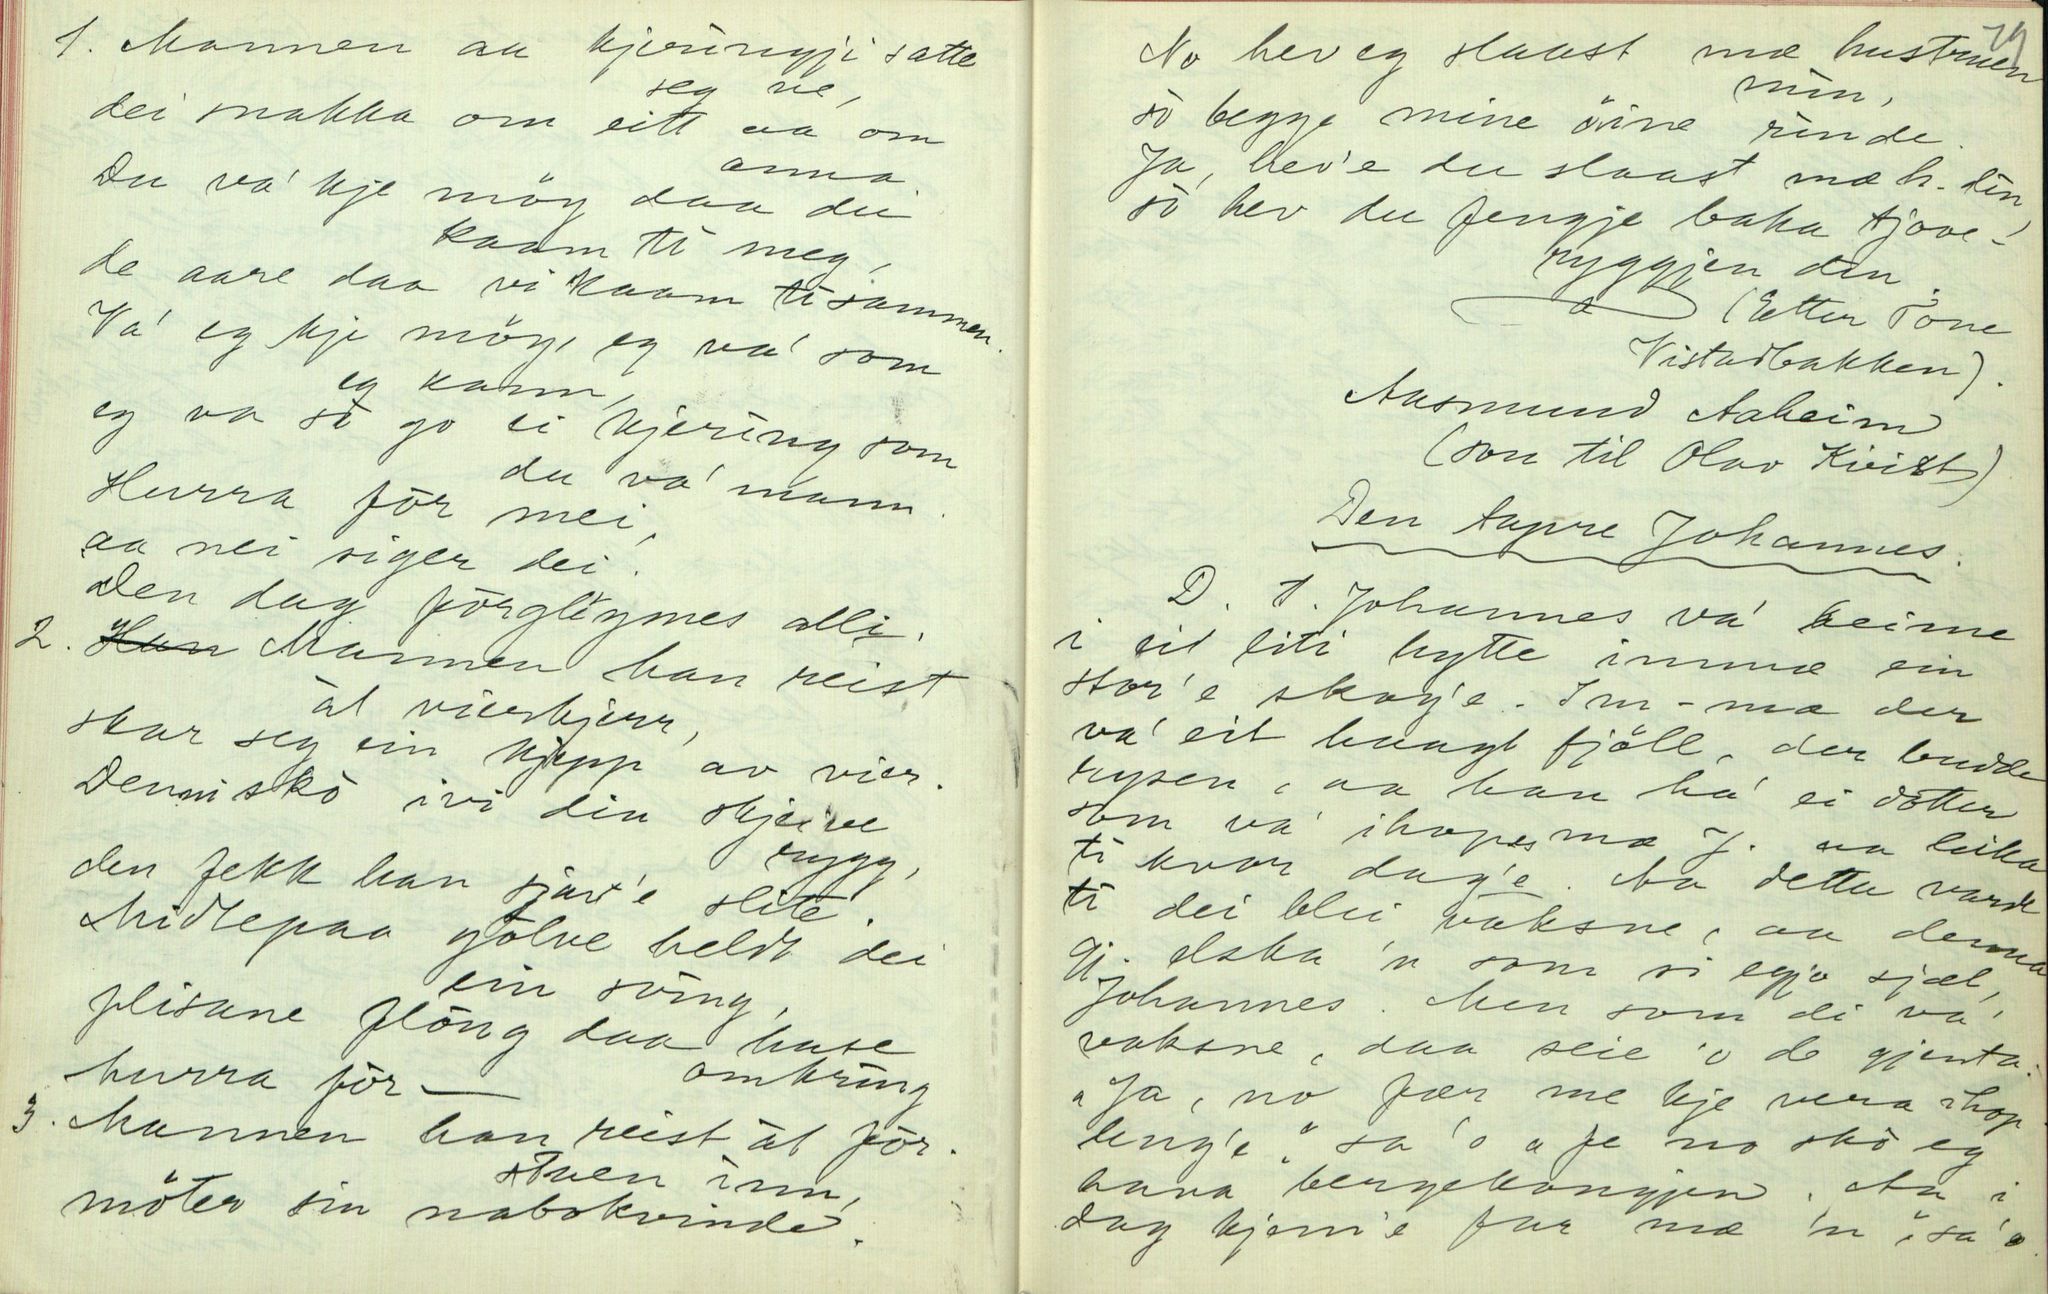 1. Mannen aa kjeringji satte
seg ne,
dei snakka om eitt aa om
anna.
Du va' kje möy daa du
kaam ti meg,
de aare daa vi kaam tisammen.
Va' eg kje möy, eg va' som
eg kann,
eg va so go ei kjering som
du va' mann.
Hurra for mei,
aa nei siger dei.
Den dag förglöymes alli.
2. Han Mannen han reist
åt vierkjerr,
skar seg ein kjepp av vier.
Denni sko ivi din skjeive
rygg,
den fekk han sjav'e slite.
Midtepaa golve heldt dei
ein söing,
flisane flöng daa huse
omkring
hurra for —
3. Mannen han reist åt för.
stuen inn,
möter sin nabokvinde.
79
No hev eg slaast mæ hustruen
min,
so begge mine öine rinde.
Ja, hev'e du slaast mæ h. din,
so hev du fengje baka tjove-
ryggjen din.
(Etter Tone
Vistadbakken).
Aasmund Aaheim
(son til Olav Kvist)
Den tapre Johannes.
D. T. Johannes va' heime
i eit liti hytte immæ ein
stor'e skog'e. Im-mæ der
va' eit haagt fjöll, der budde
rysen, aa han ha' ei dotter
som va' ihopes mæ J. aa leika
ti kvar dag'e. Aa detta varde
ti dei blei vaksne, aa denna
gj. elska 'n som si egjo sjæl,
Johannes. Men som di va'
vaksne, daa seie 'o de gjenta.
"Ja, no fær me kje vera ihop
leng'e", sa 'o "fe no sko eg
hava bergekongjen. Aa i
dag kjem'e far mæ 'n", sa' o.